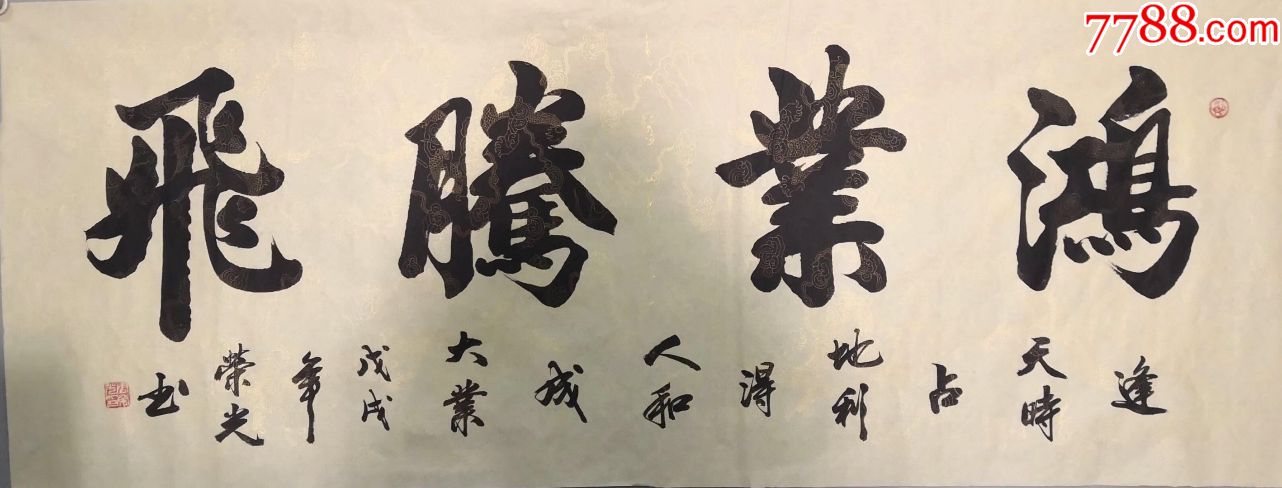 7788.com
鴻業騰飛
逢天時占地利得人和成大業戊戌年榮光书